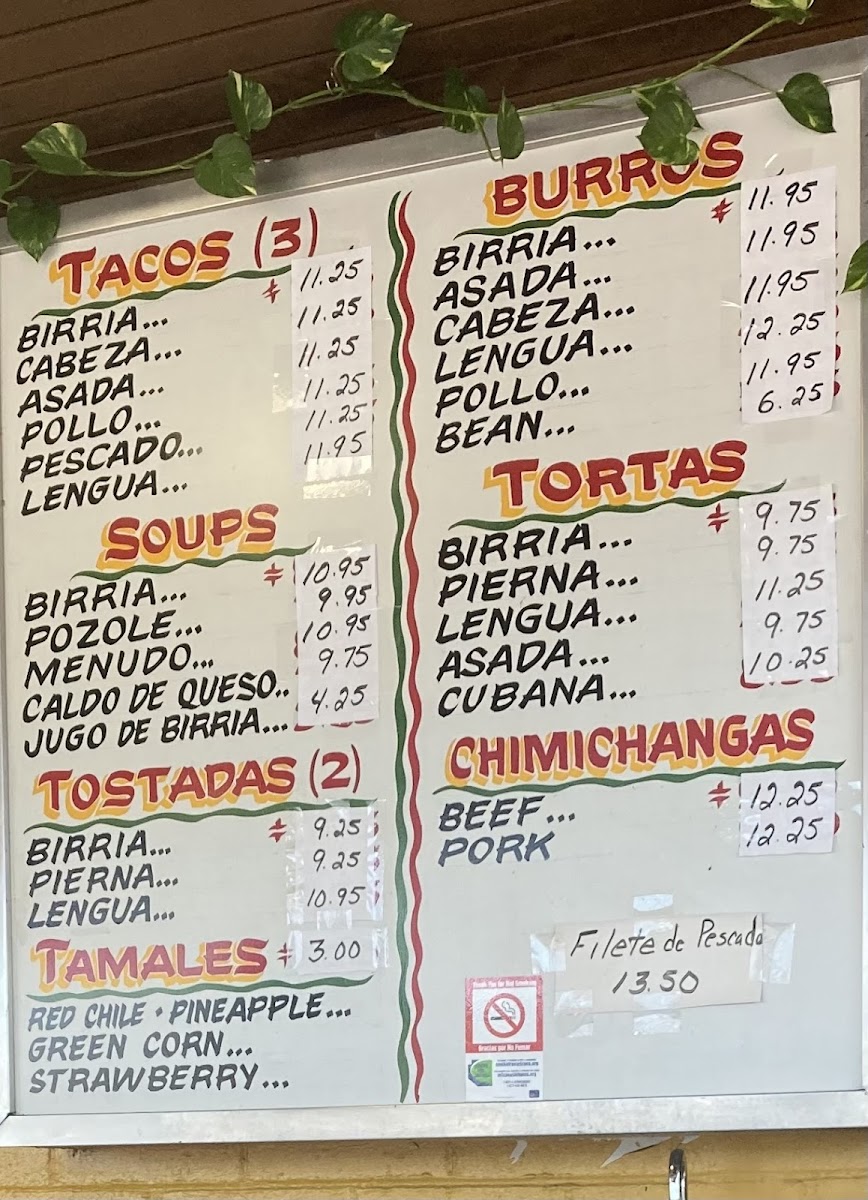 TACOS (3)
BIRRIA... $ 11.25
CABEZA... 11.25
ASADA... 11.25
POLLO... 11.25
PESCADO... 11.25
LENGUA... 11.95
SOUPS
BIRRIA... $ 10.95
POZOLE... 9.95
MENUDO... 10.95
CALDO DE QUESO.. 9.75
JUGO DE BIRRIA... 4.25
TOSTADAS (2)
BIRRIA... $ 9.25
PIERNA... 9.25
LENGUA... 10.95
TAMALES $ 3.00
RED CHILE • PINEAPPLE...
GREEN CORN...
STRAWBERRY...
BURROS
BIRRIA... $ 11.95
ASADA... 11.95
CABEZA... 11.95
LENGUA... 12.25
POLLO... 11.95
BEAN... 6.25
TORTAS
BIRRIA... $ 9.75
PIERNA... 9.75
LENGUA... 11.25
ASADA... 9.75
CUBANA... 10.25
CHIMICHANGAS
BEEF... $ 12.25
PORK 12.25
Filete de Pescado
13.50
Thank You for Not Smoking
Gracias por No Fumar